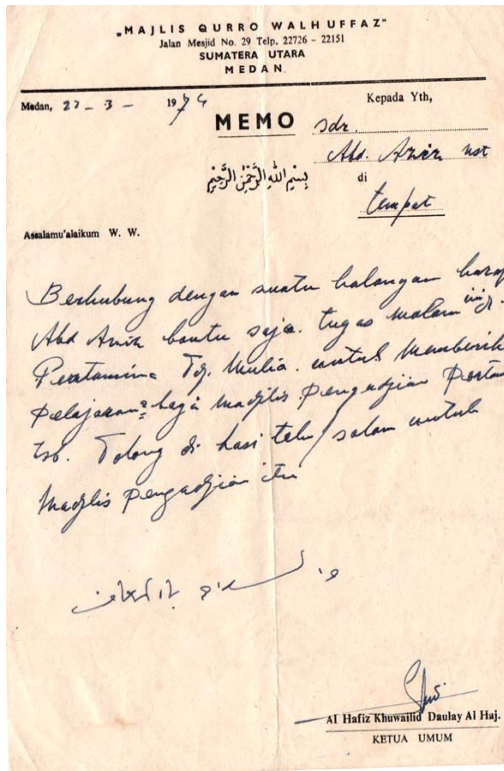 „MAJLIS QURRO WALHUFFAZ"
Jalan Mesjid No. 29 Telp. 22726 – 22151
SUMATERA UTARA
MEDAN
Medan, 22 – 3 – 1974
Kepada Yth,
MEMO
sdr.
Abd. Aziz nst
بِسْمِ اللهِ الرَّحْمٰنِ الرَّحِيْمِ
di
tempat
Assalamu'alaikum W. W.
Berhubung dengan suatu halangan harap
Abd Aziz bantu saja. tugas malam ini di
Pertamina Tdj. Mulia. untuk memberik
pelajaran² bagi madjlis pengadjian Pertam
tsb. Tolong di kasi salam untuk
madjlis pengadjian itu
Al Hafiz Khuwailid Daulay Al Haj.
KETUA UMUM